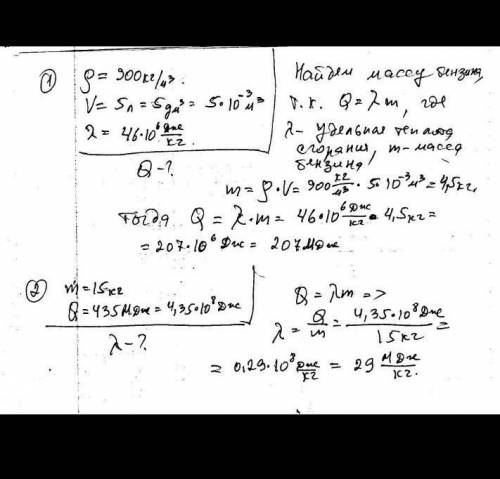 ① ρ = 900 кг/м³.
V = 5л = 5дм³ = 5·10⁻³ м³
λ = 46·10⁶ Дж/кг.
Q - ?
Найдем массу бензина,
т.к. Q = λm, где
λ - удельная теплота
сгорания, m - масса
бензина
m = ρ·V = 900 кг/м³ · 5·10⁻³ м³ = 4,5 кг,
тогда Q = λ·m = 46·10⁶ Дж/кг · 4,5 кг =
= 207·10⁶ Дж = 207 МДж
② m = 15 кг
Q = 435 МДж = 4,35·10⁸ Дж
λ - ?
Q = λm =>
λ = Q/m = 4,35·10⁸ Дж/15 кг =
= 0,29·10⁸ Дж/кг = 29 МДж/кг.